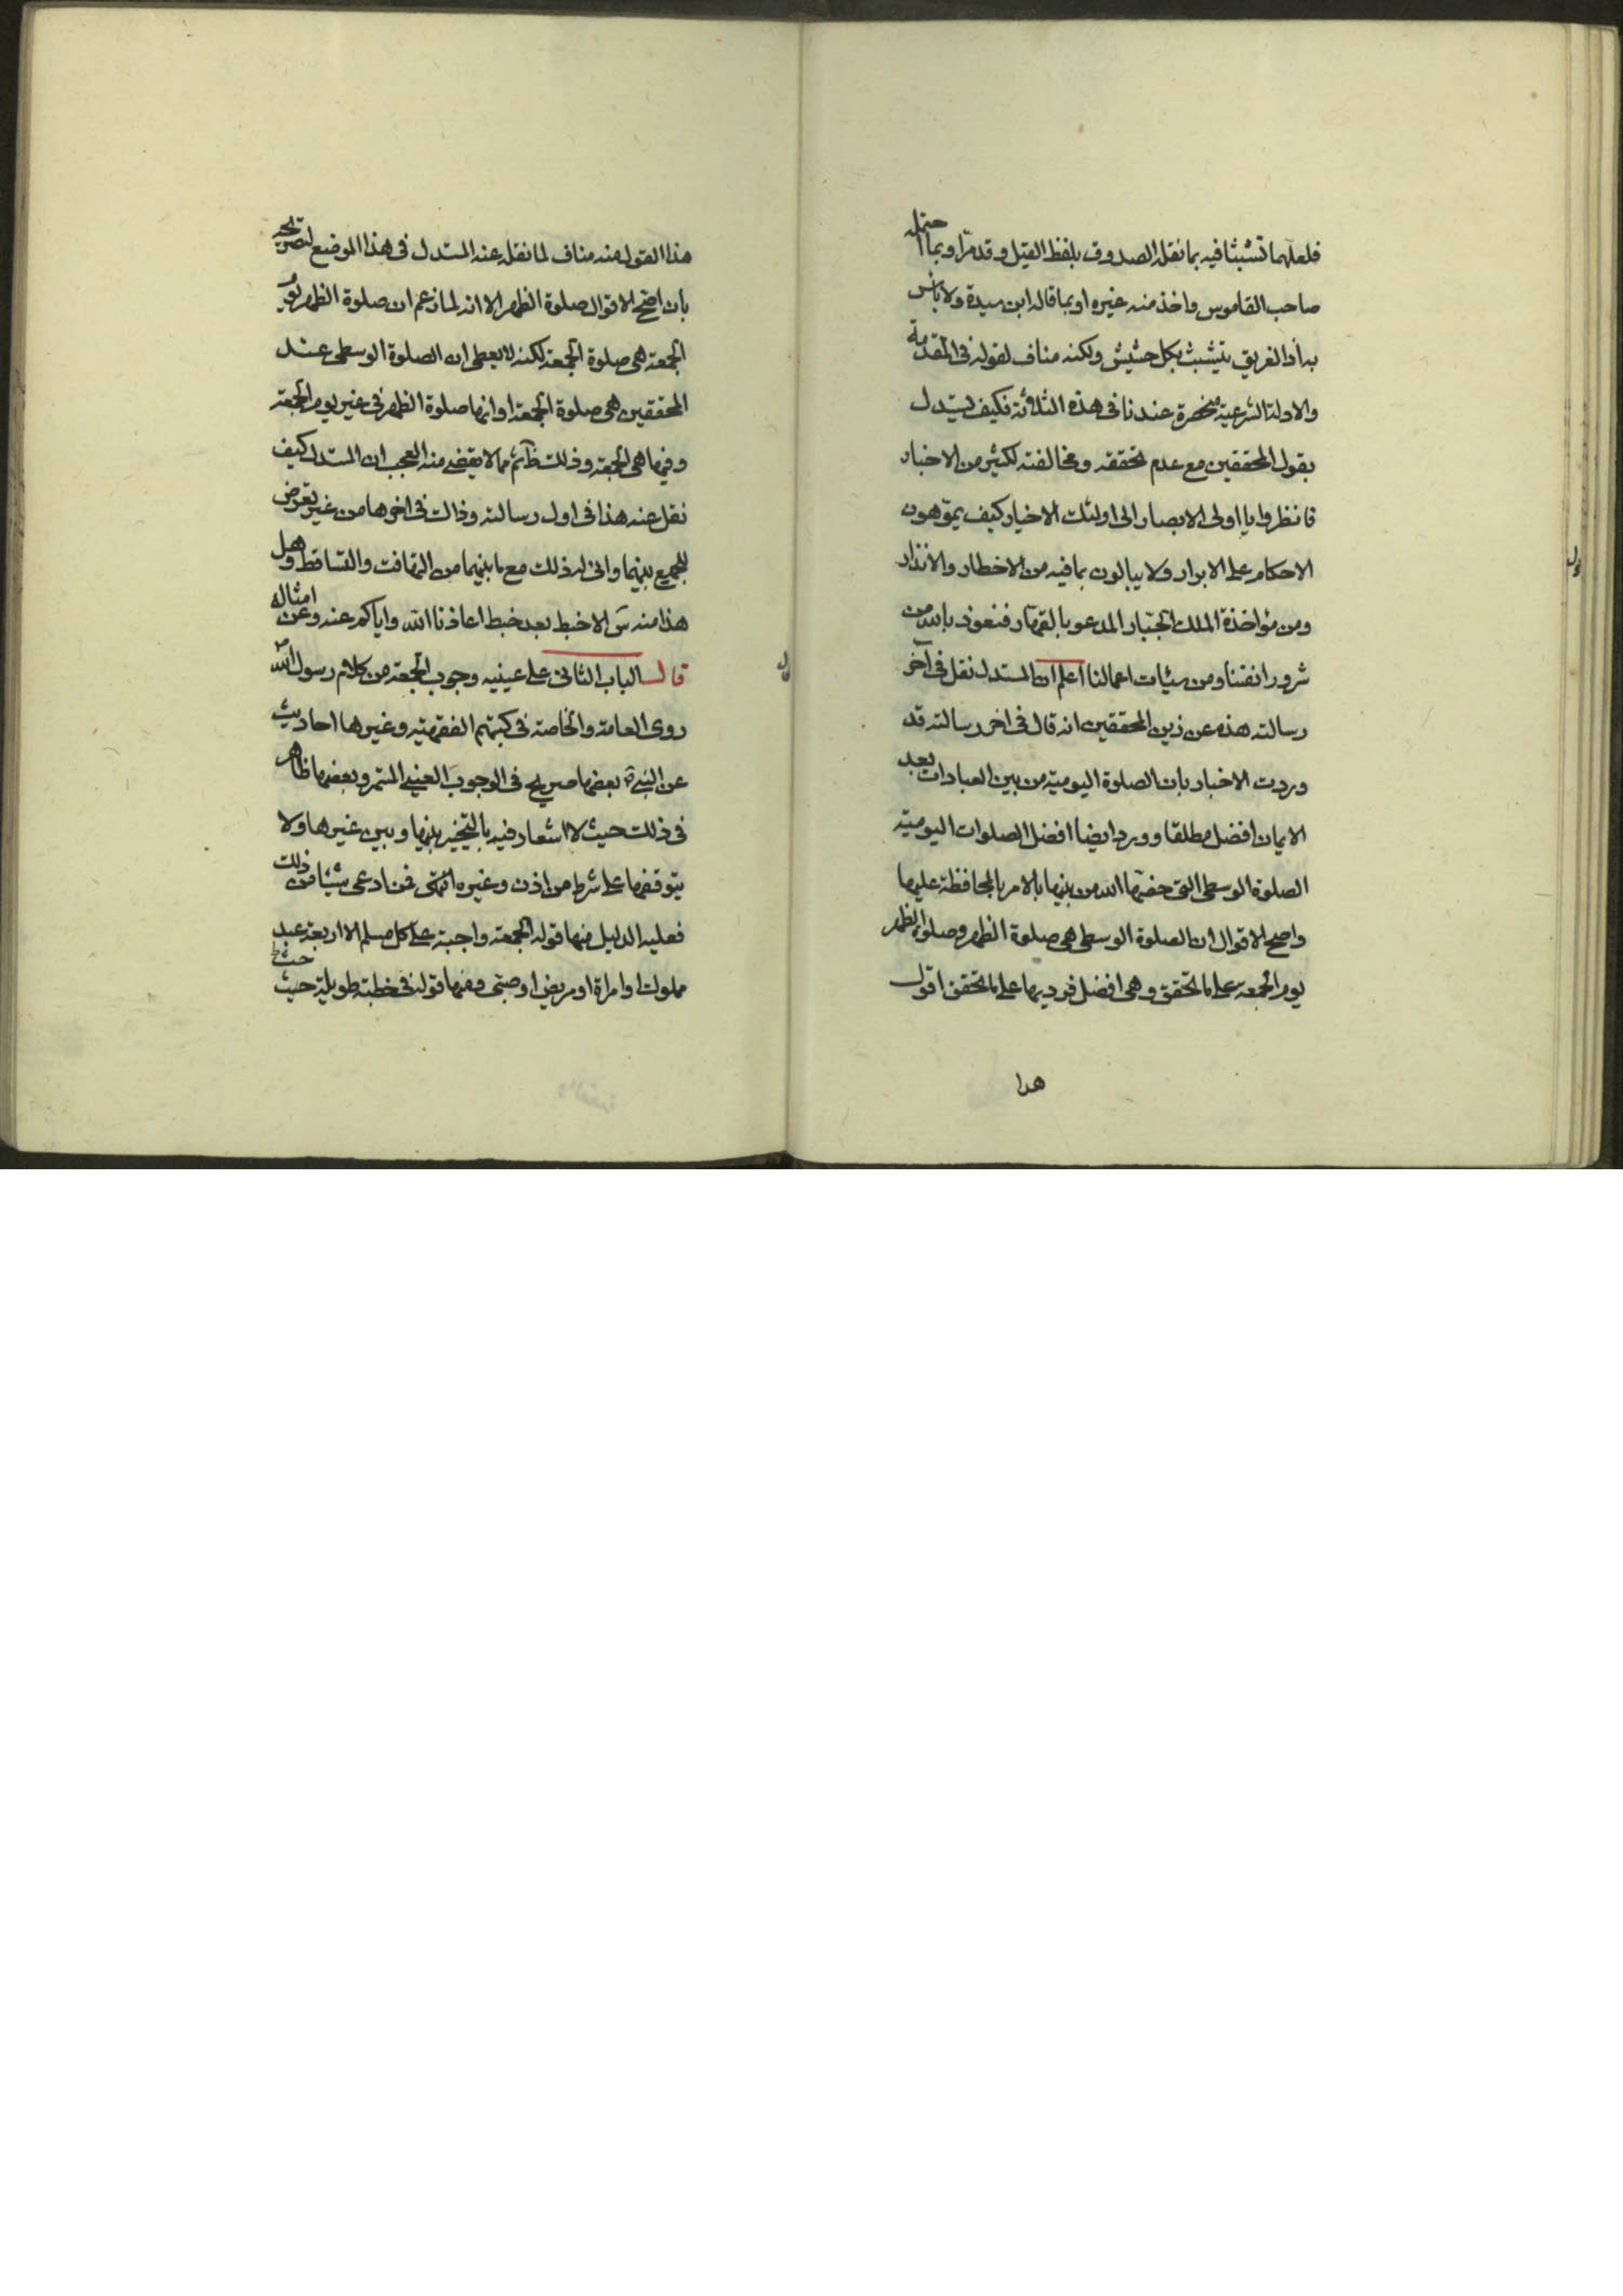 فلعلهما تشبثا فيه بما نقله الصدوق بلفظ القيل وقد مرّ او بما احتمله
صاحب القاموس واخذ منه غيره او بما قاله ابن سيدة ولا باس
به اذ الغريق يتشبث بكل حشيش ولكنه مناف لقوله فى المقدمة
والادلة الشرعية منحصرة عندنا فى هذه الثلاثة فكيف يستدل
بقول المحققين مع عدم تحققه ومخالفته لكثير من الاخبار
فانظروا يا اولى الابصار الى اولئك الاخيار كيف يموّهون
الاحكام على الابرار ولا يبالون بما فيه من الاخطار والانذار
ومن مؤاخذة الملك الجبّار المدعو بالقهّار فنعوذ بالله من
شرور انفسنا ومن سيئات اعمالنا اعلم ان المستدل نقل فى آخر
رسالته هذه عن زين المحققين انه قال فى اخر رسالته قد
وردت الاخبار بان الصلوة اليومية من بين العبادات بعد
الايمان افضل مطلقا وورد ايضا افضل الصلوات اليومية
الصلوة الوسطى التى خصّها الله من بينها بالامر بالمحافظة عليها
واصح الاقوال ان الصلوة الوسطى هى صلوة الظهر وصلوة الظهر
يوم الجمعة على ما تحقق وهى افضل فرديها على ما تحقق اقول
هذا
هذا القول منه مناف لما نقله عنه المستدل فى هذا الموضع لتصريحه
بان اصح الاقوال صلوة الظهر الا انه لما زعم ان صلوة الظهر يوم
الجمعة هى صلوة الجمعة لكنه لا يعطى ان الصلوة الوسطى عند
المحققين هى صلوة الجمعة او انها صلوة الظهر فى غير يوم الجمعة
وفيها هى الجمعة وذلك ظ ثم مما لا يقضى منه العجب ان المستدل كيف
نقل عنه هذا فى اول رسالته وذاك فى اخرها من غير تعرض
للجمع بينهما وانى له ذلك مع ما بينهما من التهافت والتساقط وهل
هذا منه الا خبط بعد خبط اعاذنا الله واياكم عنه وعن امثاله
قال الباب الثانى على عينيه وجوب الجمعة من كلام رسول الله ص
روى العامة والخاصة فى كتبهم الفقهية وغيرها احاديث
عن النبى بعضها صريح فى الوجوب العينى المستمر وبعضها ظاهر
فى ذلك حيث لا اشعار فيه بالتخيير بينها وبين غيرها ولا
بتوقفها على شرط من اذن وغيره فمن ادعى شيئا من ذلك
فعليه الدليل منها قوله الجمعة واجبة على كل مسلم الا اربعة عبد
مملوك او امراة او مريض او صبى ومنها قوله فى خطبة طويلة حيث